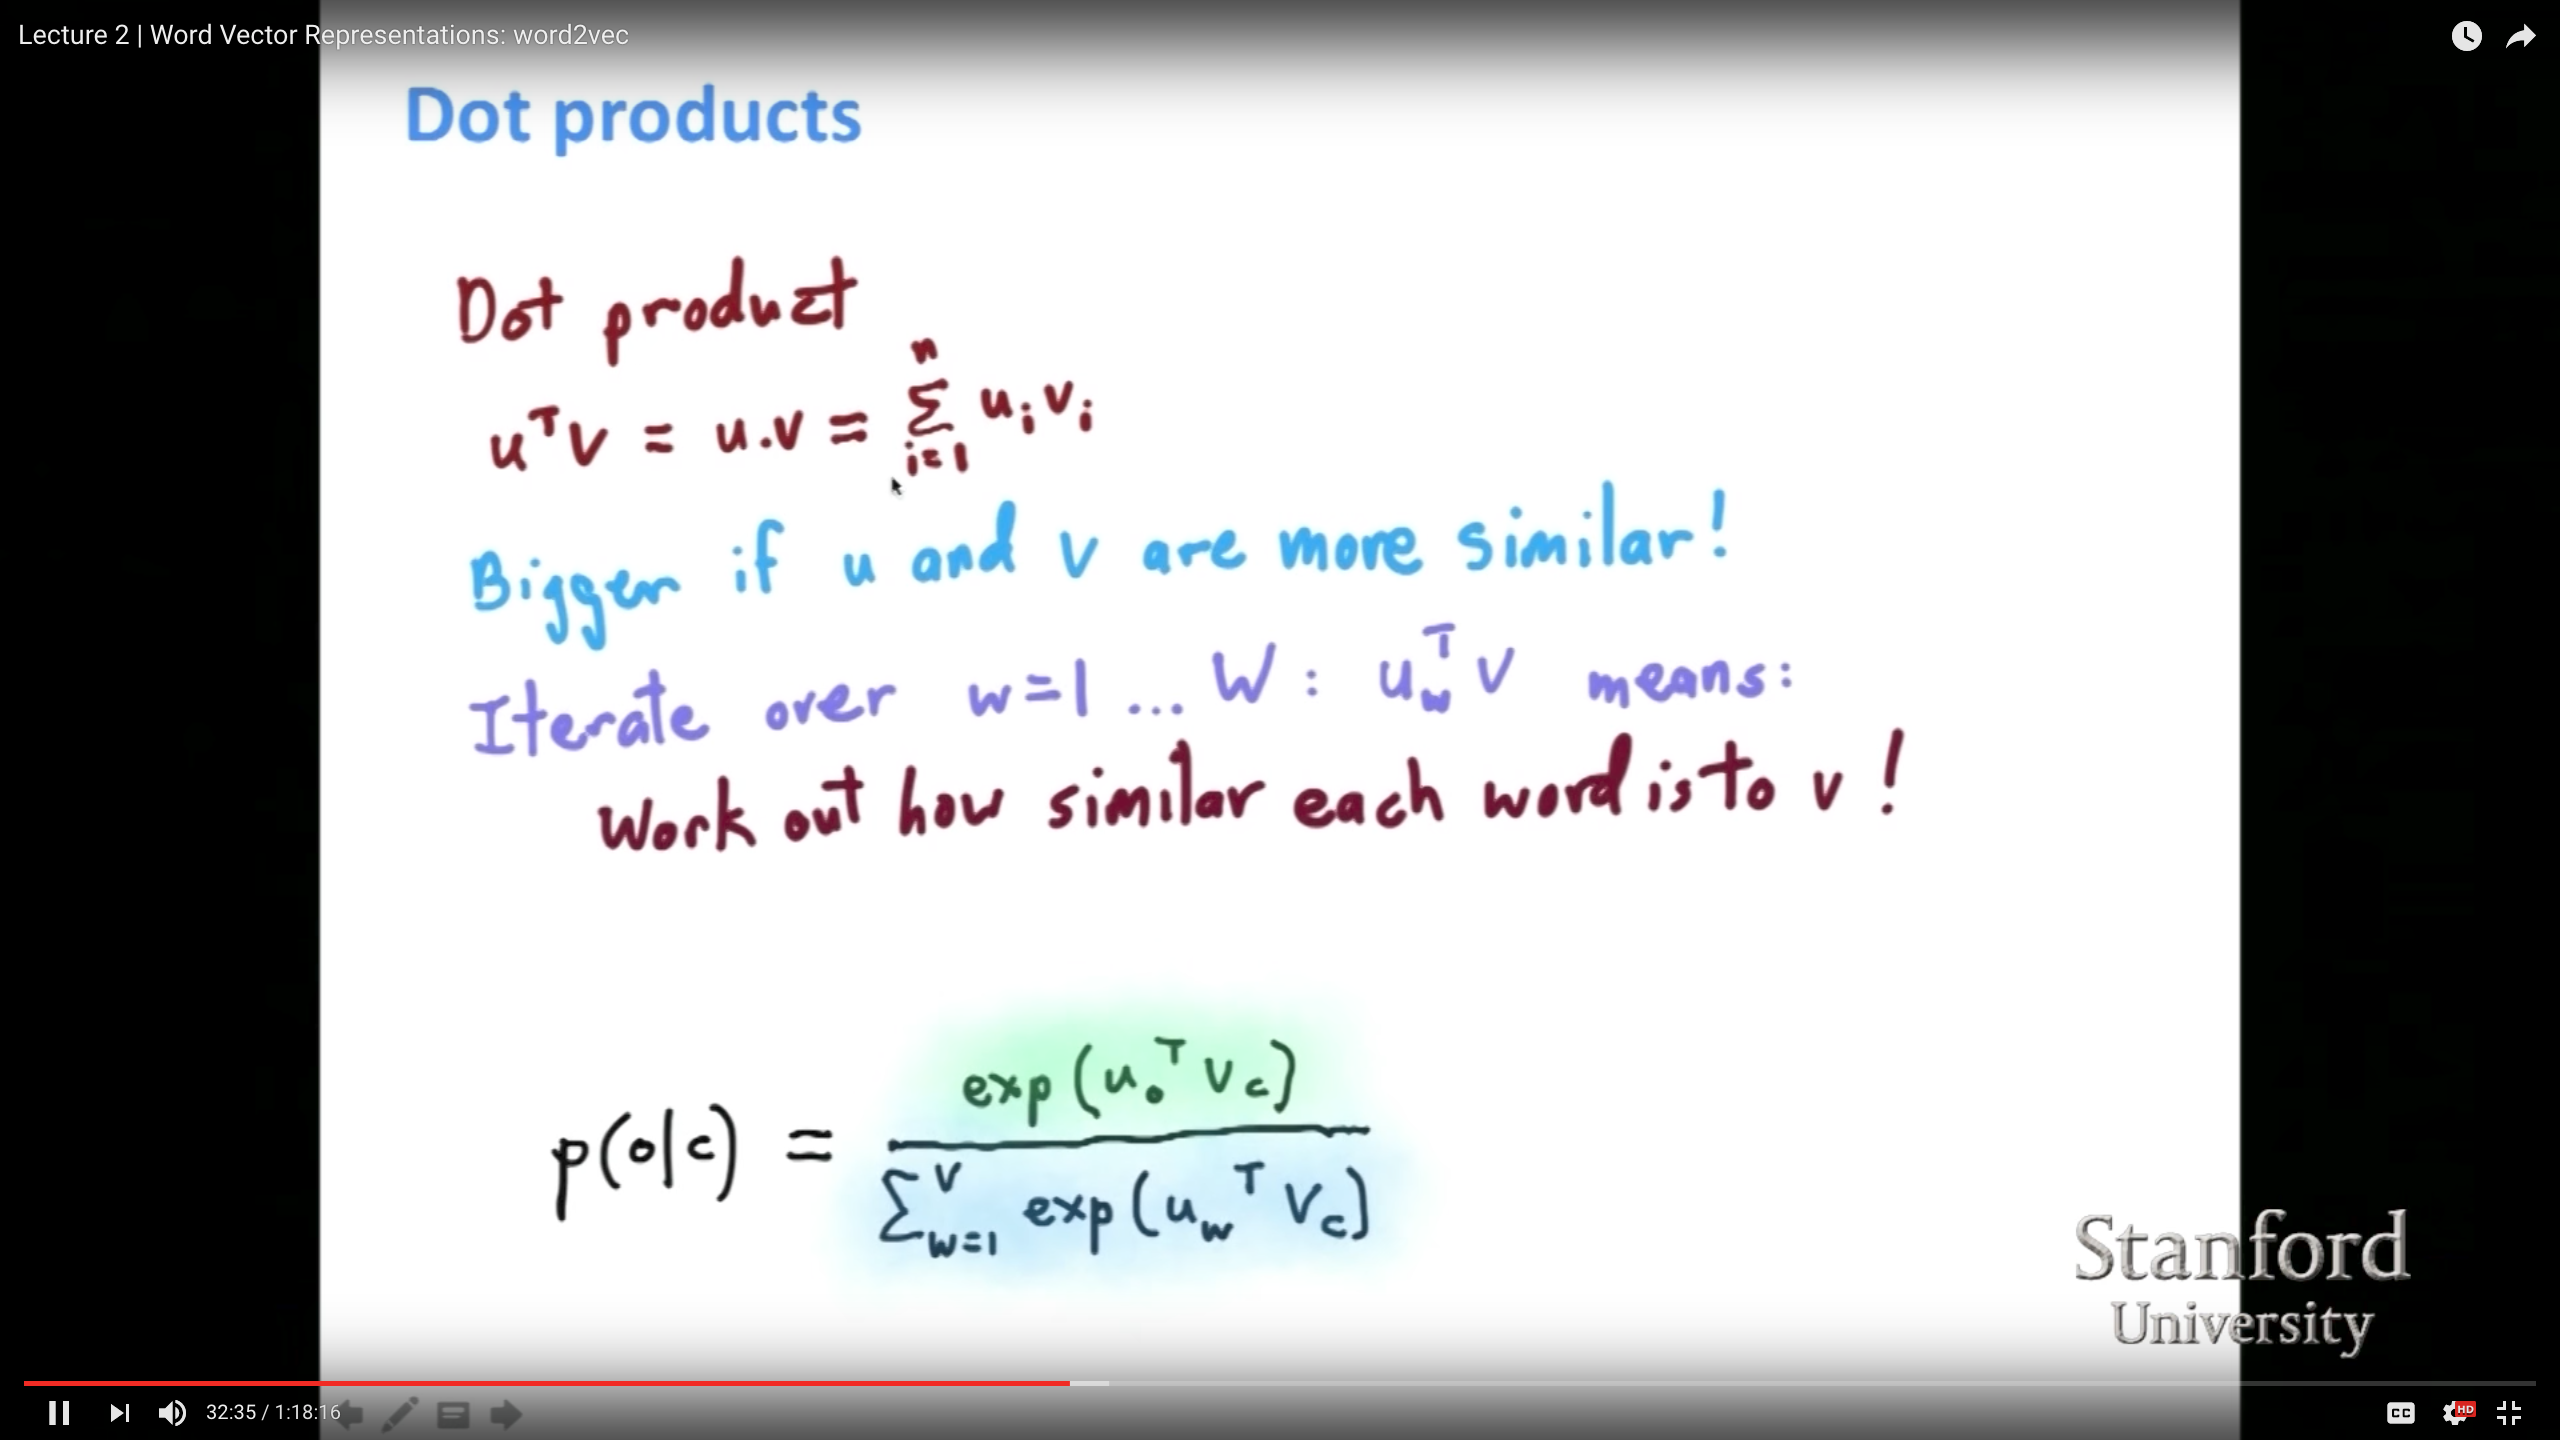 Lecture 2 | Word Vector Representations: word2vec
Dot products
Dot product
uᵀv = u.v = Σᵢ₌₁ⁿ uᵢvᵢ
Bigger if u and v are more similar!
Iterate over w=1 ... W : u_wᵀ v means:
Work out how similar each word is to v !
p(o|c) = exp(u_oᵀ v_c) / Σ_{w=1}^{V} exp(u_wᵀ v_c)
Stanford
University
32:35 / 1:18:16
CC
HD